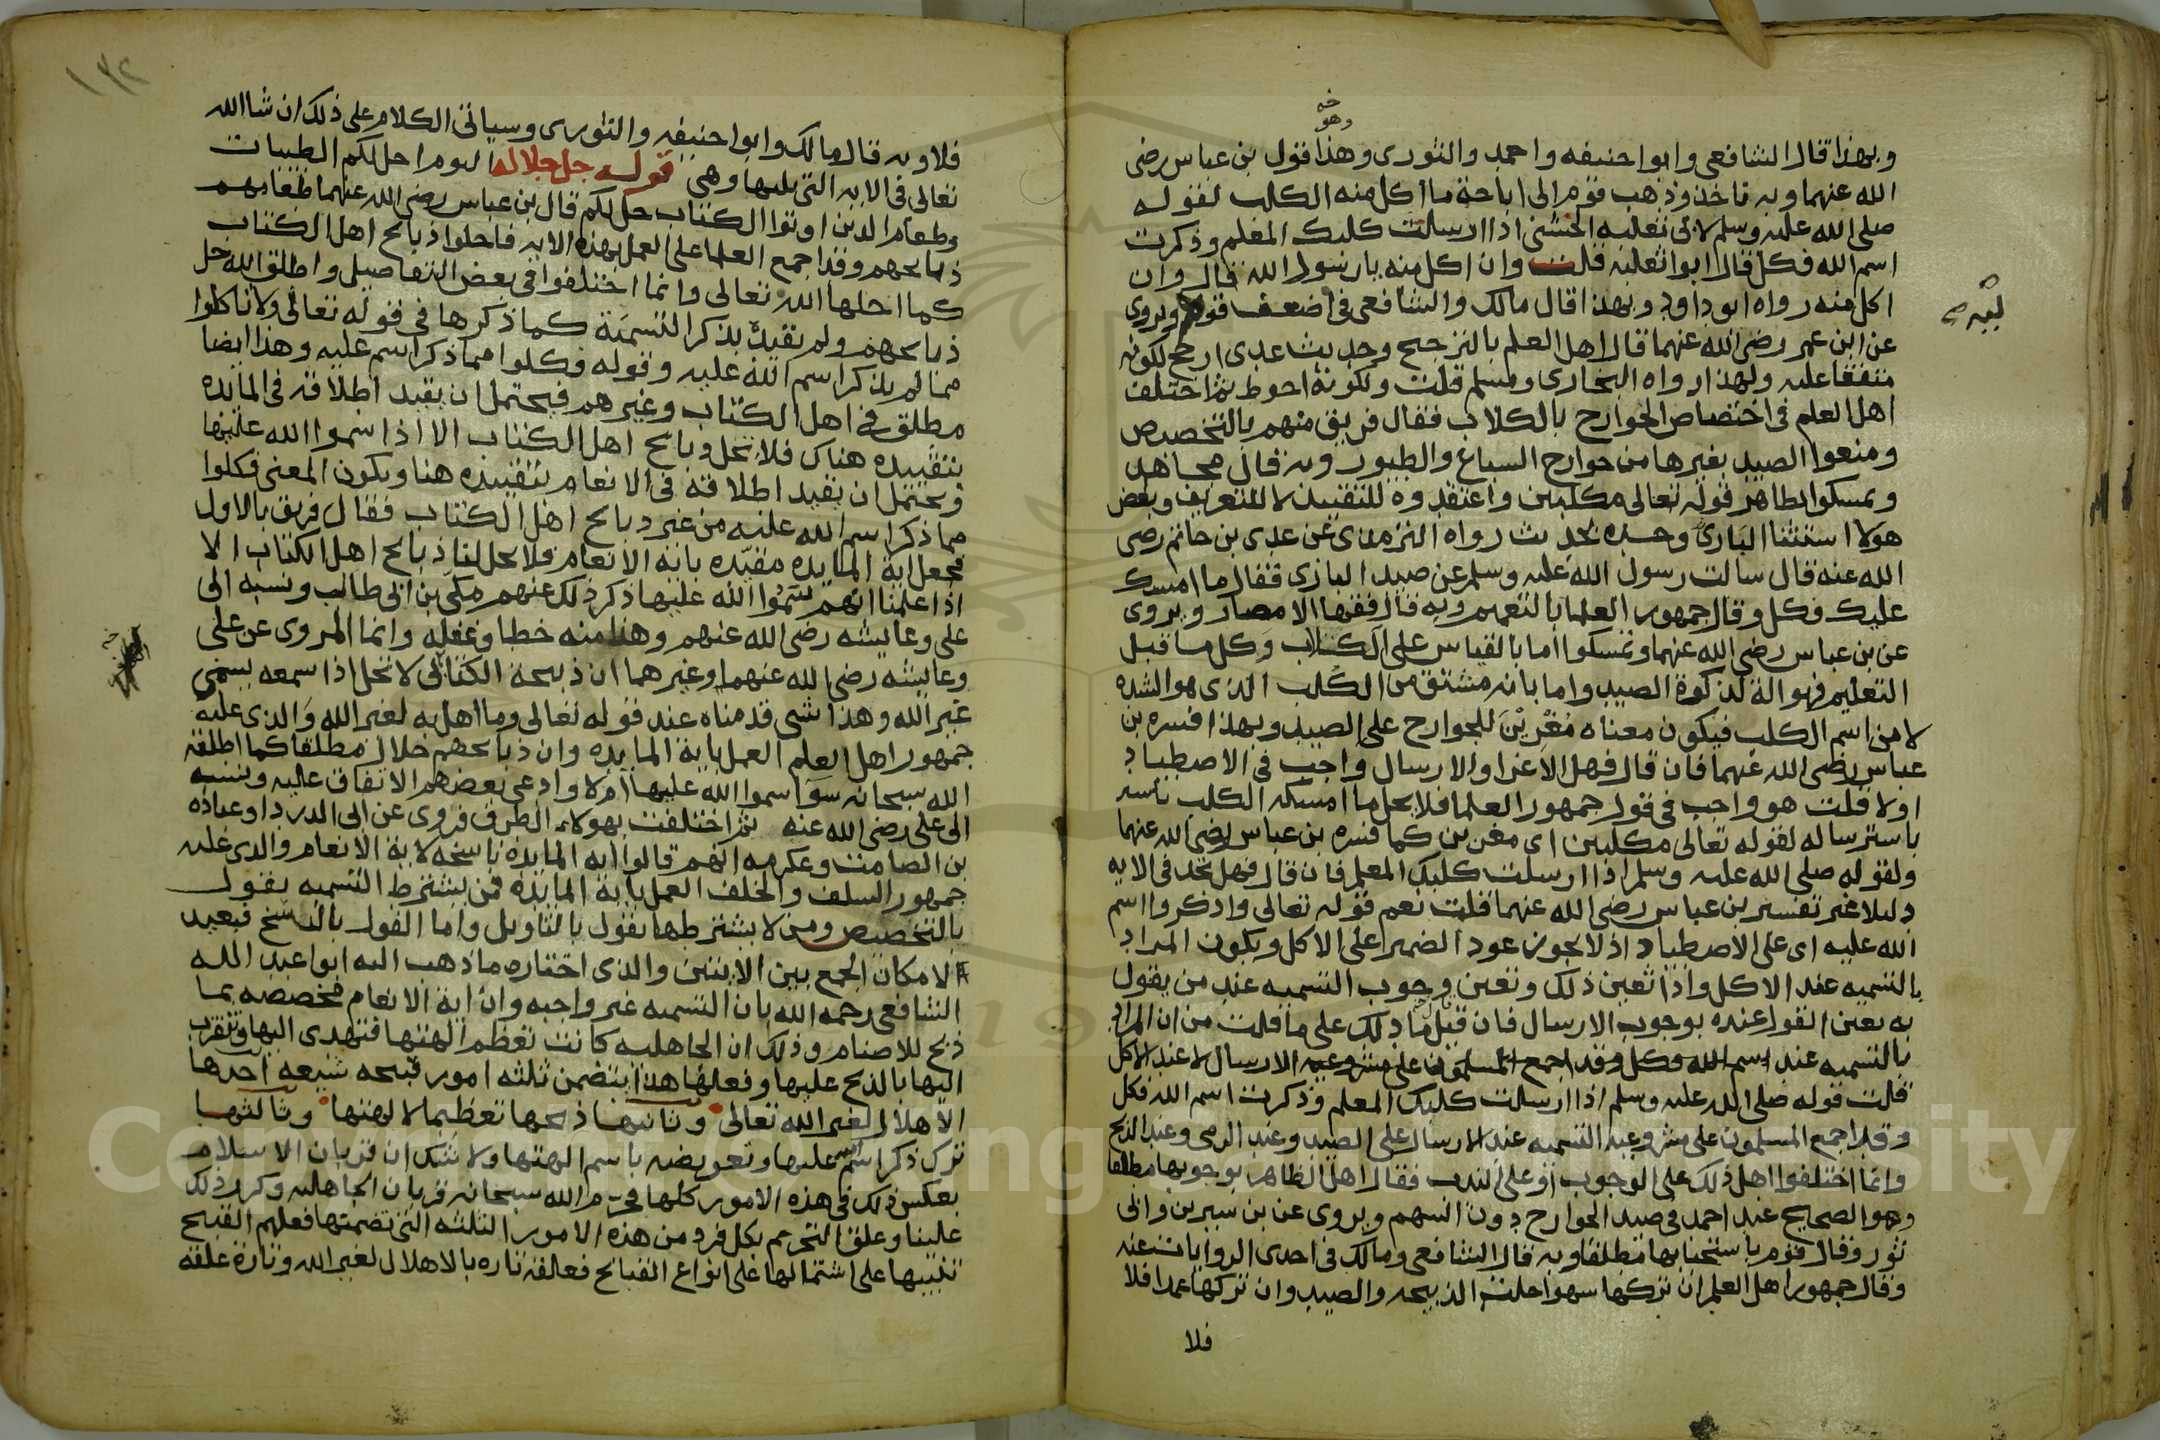 وبهذا قال الشافعي وابو احنيفه واحمد والثوري وهذا قول بن عباس رضي
الله عنهما وبه ناخذ وذهب قوم الى اباحة ما اكل منه الكلب لقوله
صلى الله عليه وسلم لابي ثعلبه الخشني اذا ارسلت كلبك المعلم وذكرت
اسم الله فكل قال ابوا ثعلبه قلت وان اكل منه يا رسول الله قال وان
اكل منه رواه ابو داود وبهذا قال مالك والشافعي في اضعف قوليه ويروى
عن ابن عمر رضي الله عنهما قال اهل العلم بالترجيح وحديث عدي ارجح لكونه
متفقا عليه ولهذا رواه البخاري ومسلم قلت ولكونه احوط ثم اختلف
اهل العلم في اختصاص الجوارح بالكلاب فقال فريق منهم بالتخصيص
ومنعوا الصيد بغيرها من جوارح السباع والطيور وبه قال مجاهد
وتمسكوا بظاهر قوله تعالى مكلبين واعتقدوه للتقييد لا للتعريف وبعض
هولا استثنا البازي وحده لحديث رواه الترمذي عن عدي بن حاتم رضي
الله عنه قال سالت رسول الله عليه وسلم عن صيد البازي فقال ما امسك
عليك فكل وقال جمهور العلما بالتعميم وبه قال فقها الامصار ويروى
عن بن عباس رضي الله عنهما وتمسكوا اما بالقياس على الكلاب وكل ما قبل
التعليم فهو الة لذكوة الصيد واما بانه مشتق من الكلب الذي هو الشده
لا من اسم الكلب فيكون معناه مغرين للجوارح على الصيد وبهذا فسره بن
عباس رضي الله عنهما فان قال فهل الاغرا والارسال واجب في الاصطياد
اولا قلت هو واجب في قول جمهور العلما فلا يحل ما امسكه الكلب
باسترساله لقوله تعالى مكلبين اي مغرين كما فسره بن عباس رضي الله عنهما
ولقوله صلى الله عليه وسلم اذا ارسلت كلبك المعلم فان قال فهل تجد في الايه
دليلا غير تفسير بن عباس رضي الله عنهما قلت نعم قوله تعالى واذكروا اسم
الله عليه اي على الاصطياد اذ لا يجوز عود الضمير على الاكل ويكون المراد
بالتسميه عند الاكل واذا تعين ذلك وتعين وجوب التسميه عند من يقول
به تعين القول عنده بوجوب الارسال فان قيل ما دلك على ما قلت من ان المراد
بالتسميه عند اسم الله وكل وقد اجمع المسلمون على مشروعيه الارسال لا عند الاكل
قلت قوله صلى الله عليه وسلم اذا ارسلت كلبك المعلم وذكرت اسم الله فكل
وقد اجمع المسلمون على مشروعيه التسميه عند الارسال على الصيد وعند الرمي وعند الذبح
وانما اختلفوا اهل ذلك على الوجوب او على الندب فقال اهل الظاهر بوجوبها مطلقا
وهو الصحيح عند احمد في صيد الجوارح دون السهم ويروى عن بن سيرين وابي
ثور وقال قوم باستحبابها مطلقا وبه قال الشافعي ومالك في احدى الروايات عنه
وقال جمهور اهل العلم ان تركها سهوا حلت الذبيحه والصيد وان تركها عمدا فلا
فلا
١٣٢
فلا وبه قال مالك وابو احنيفه والثوري وسياتي الكلام على ذلك ان شا الله
تعالى في الايه التي يليها وهي قوله جل جلاله اليوم احل لكم الطيبات
وطعام الذين اوتوا الكتاب حل لكم قال بن عباس رضي الله عنهما طعامهم
ذبايحهم وقد اجمع العلما على العمل بهذه الايه فاحلوا ذبايح اهل الكتاب
كما احلها الله تعالى وانما اختلفوا في بعض التفاصيل واطلق الله حل
ذبايحهم ولم يقيده بذكر التسمية كما ذكرها في قوله تعالى ولا تاكلوا
مما لم يذكر اسم الله عليه وقوله فكلوا مما ذكر اسم عليه وهذا ايضا
مطلق في اهل الكتاب وغيرهم فيحتمل ان يقيد اطلاقه في المايده
بتقييده هناك فلا تحل ذبايح اهل الكتاب الا اذا سموا الله عليها
ويحتمل ان يقيد اطلاقه في الانعام بتقييده هنا ويكون المعنى فكلوا
مما ذكر اسم الله عليه من غير ذبايح اهل الكتاب فقال فريق بالاول
فجعل اية المايده مقيده باية الانعام فلا يحل لنا ذبايح اهل الكتاب الا
اذا علمنا انهم سموا الله عليها ذكر ذلك عنهم مكي بن ابي طالب ونسبه الى
علي وعايشه رضي الله عنهم وهذا منه خطا وغفله وانما المروي عن علي
وعايشه رضي الله عنهما وغيرهما ان ذبيحة الكتابي لا تحل اذا سمعه يسمي
غير الله وهذا شي قدمناه عند قوله تعالى وما اهل به لغير الله والذي عليه
جمهور اهل العلم العمل باية المايده وان ذبايحهم حلال مطلقا كما اطلقه
الله سبحانه سوا سموا الله عليها ام لا وادعى بعضهم الاتفاق عليه ونسبه
الى علي رضي الله عنه ثم اختلفت بهولاء الطرق فروي عن ابي الدردا وعباده
بن الصامت وعكرمه انهم قالوا ايه المايده ناسخه لاية الانعام والذي عليه
جمهور السلف والخلف العمل باية المايده فمن يشترط التسميه يقول
بالتخصيص ومن لا يشترطها يقول بالتاويل واما القول بالنسخ فبعيد
لامكان الجمع بين الايتين والذي اختاره ما ذهب اليه ابوا عبد الله
الشافعي رحمه الله بان التسميه غير واجبه وان اية الانعام مخصصه بما
ذبح للاصنام وذلك ان الجاهليه كانت تعظم الهتها فتهدى اليها وتتقرب
اليها بالذبح عليها وفعلها هذا يتضمن ثلثه امور قبيحه شنيعه احدها
الاهلال لغير الله تعالى وثانيها ذبحها تعظيما لالهتها وثالثها
ترك ذكر اسم عليها وتعويضه باسم الهتها ولا شك ان قربان الاسلام
بعكس ذلك في هذه الامور كلها فحرم الله سبحانه قربان الجاهليه وكرر ذلك
علينا وعلق التحريم بكل فرد من هذه الامور الثلثه التي تضمنتها فعلهم القبيح
تنبيها على اشتمالها على انواع القبائح فعالقه تاره بالاهلال لغير الله وتارة علقه